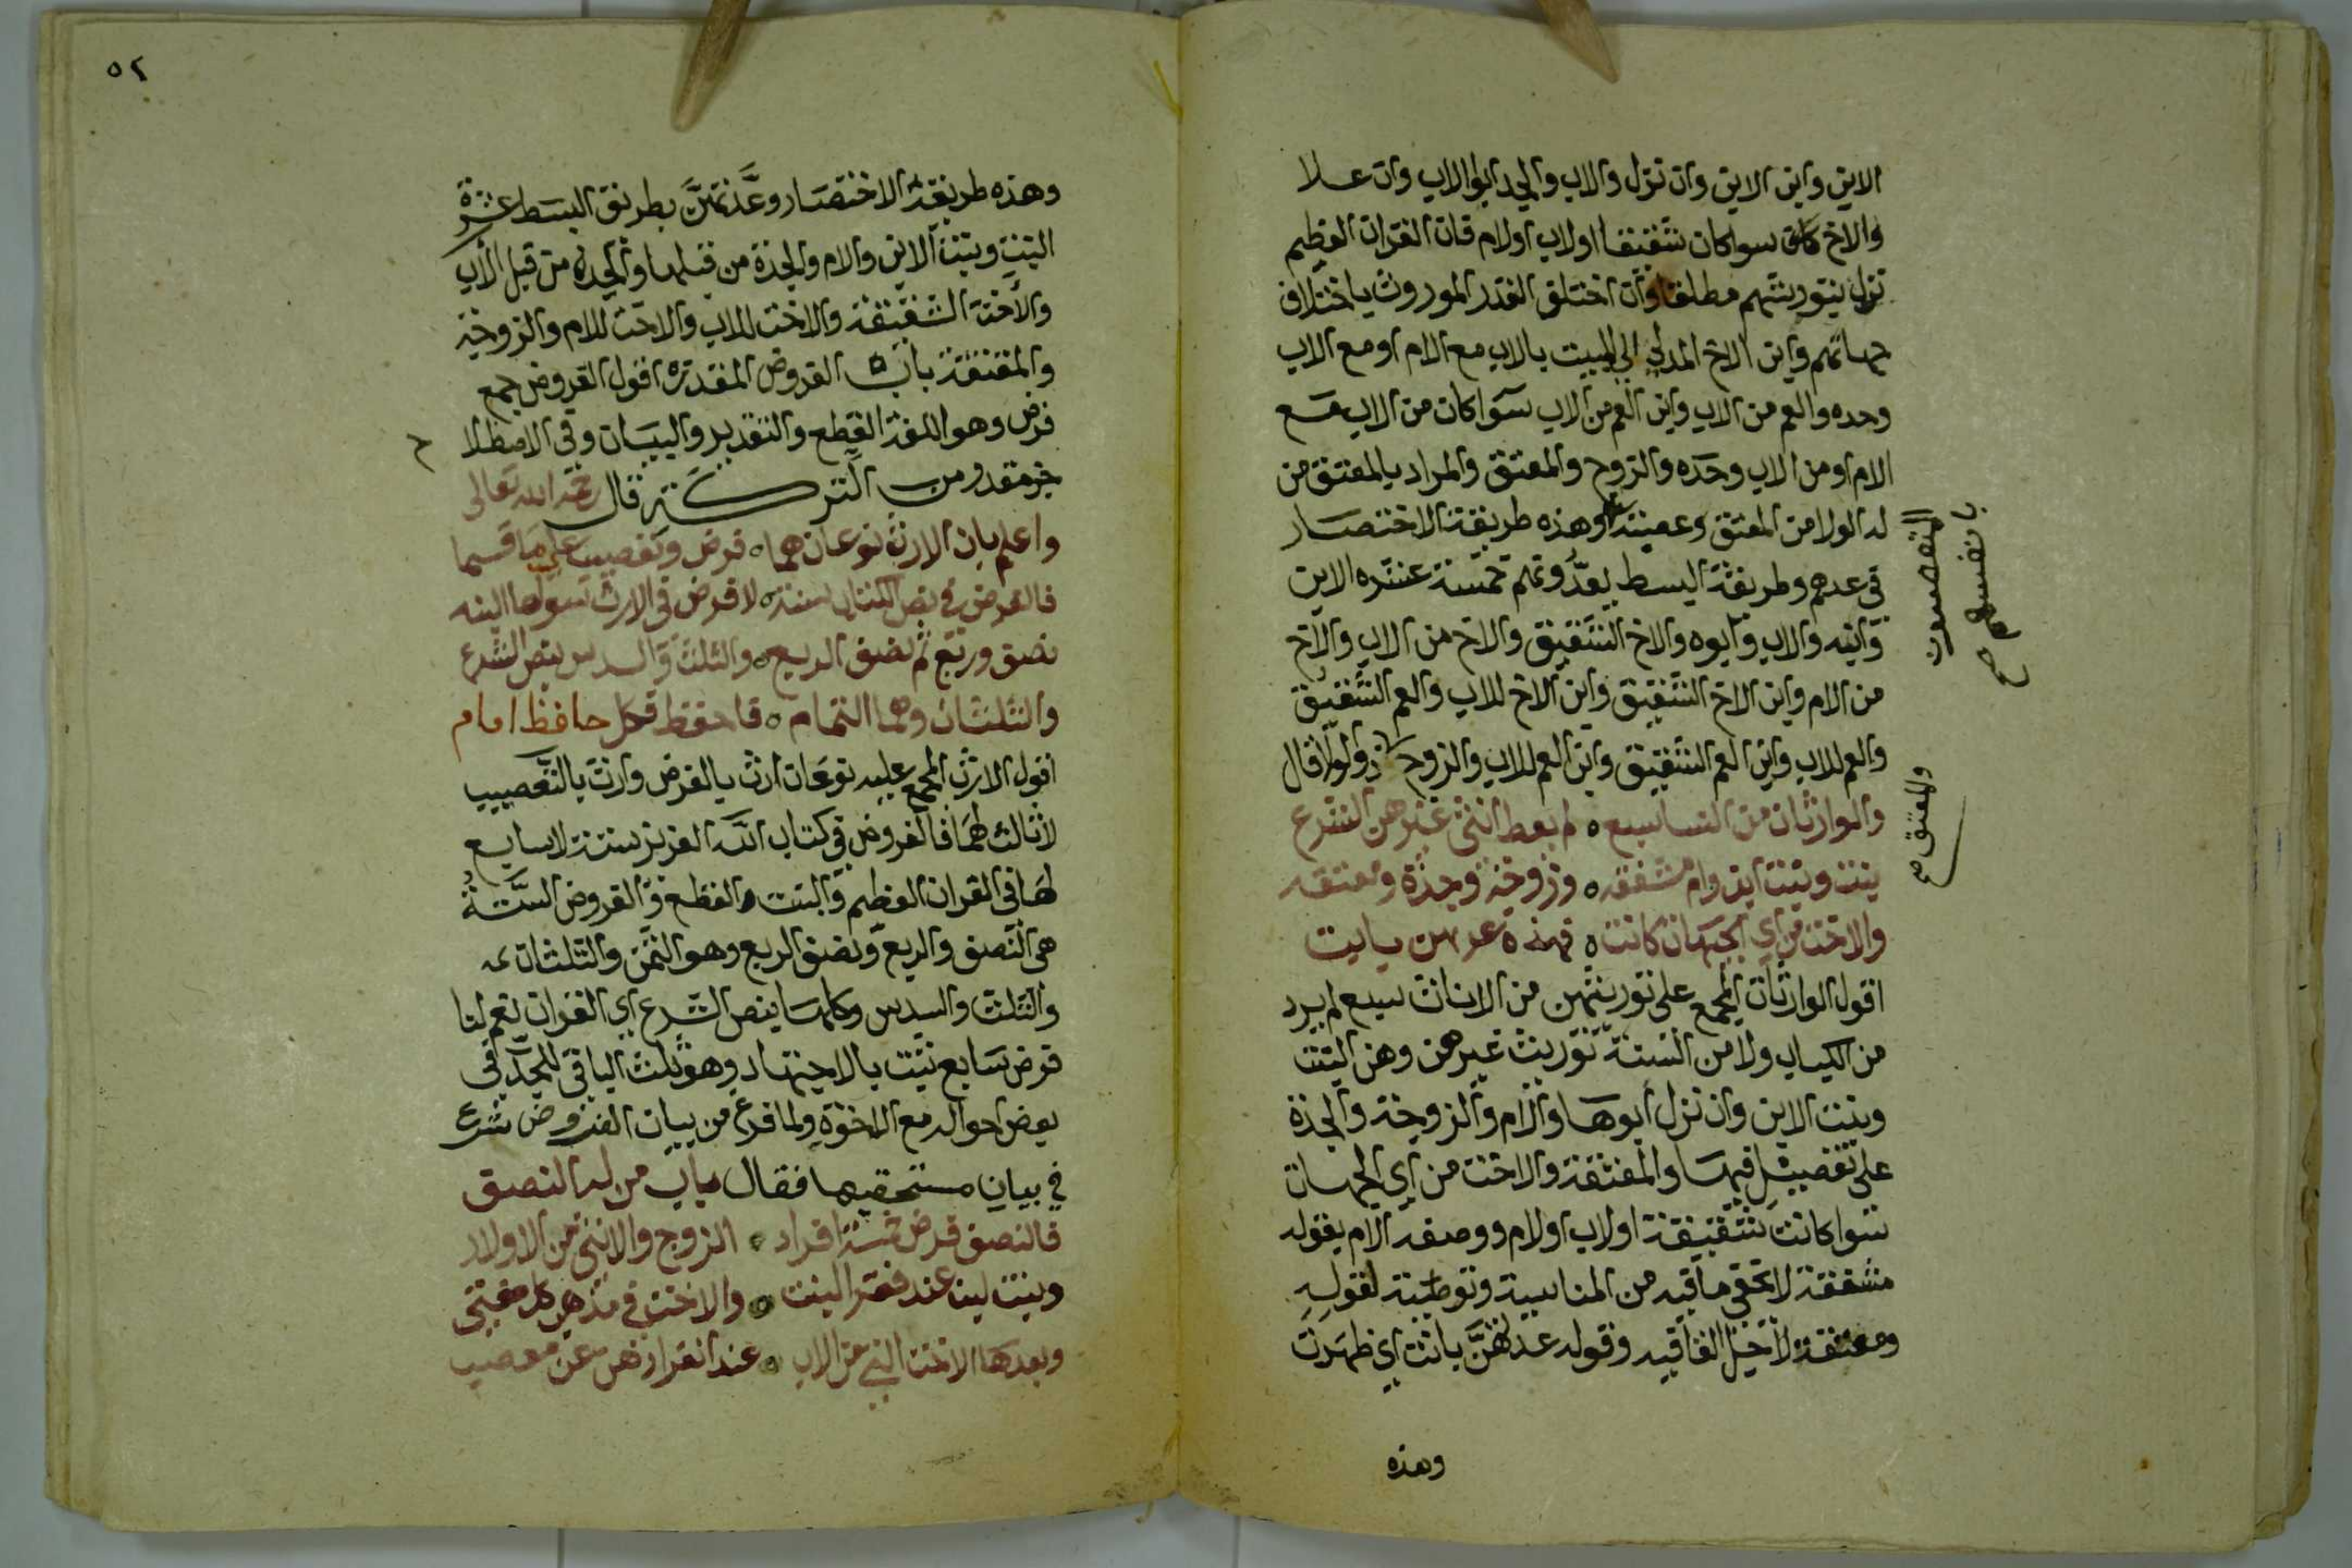 الابن وابن الابن وان نزل والاب والجد ابو الاب وان علا
والاخ كان سوا كان شقيقا او لاب او لام فان القران العظيم
نزل بتوريثهم مطلقا وان اختلف القدر الموروث باختلاف
جهاتهم وابن الاخ المدلي الي الميت بالاب مع الام او مع الاب
وحده والعم من الاب وابن العم من الاب سوا كان من الاب مع
الام او من الاب وحده والزوج والمعتق والمراد بالمعتق من
له الولا من المعتق وعصبته المتعصبون بانفسهم صح وهذه طريقة الاختصار
في عدهم وطريقة البسط يعدّونهم خمسة عشره الابن
وابنه والاب وابوه والاخ الشقيق والاخ من الاب والاخ
من الام وابن الاخ الشقيق وابن الاخ للاب والعم الشقيق
والعم للاب وابن العم الشقيق وابن العم للاب والزوج والمعتق صح ذو الولا قال
والوارثات من النسا سبع ٥ لم يعط انثى غيرهن الشرع
بنت وبنت ابن وام مشفقه ٥ وزوجة وجدة ومعتقه
والاخت من اي الجهات كانت ٥ فهذه عدتهن بانت
اقول الوارثات المجمع على توريثهن من الاناث سبع لم يرد
من الكتاب ولا من السنة توريث غيرهن وهن البنت
وبنت الابن وان نزل ابوها والام والزوجة والجدة
على تفصيل فيها والمعتقة والاخت من اي الجهات
سوا كانت شقيقة او لاب او لام ووصف الام بقوله
مشفقة لا تخفى ما فيه من المناسبة وتوطئة لقوله
ومعتقة لاجل القافيه وقوله عدتهنَّ بانت اي ظهرت
وهذه
٥٢
وهذه طريقة الاختصار وعدتهنَّ بطريق البسط عشرة
البنت وبنت الابن والام والجدة من قبلها والجدة من قبل الاب
والاخت الشقيقة والاخت للاب والاخت للام والزوجة
والمعتقة باب الفروض المقدرة اقول الفروض جمع
فرض وهو اللغة القطع والتقدير والبيان وفي الاصطلاح
جز مقدر من التركة قال رحمه الله تعالى
واعلم بان الارث نوعان هما ٥ فرض وتعصيب على ما قسما
فالفرض في نص الكتاب ستة ٥ لا فرض في الارث سواها البته
نصف وربع ثم نصف الربع ٥ والثلث والسدس بنص الشرع
والثلثان وهما التمام ٥ فاحفظ فكل حافظ امام
اقول الارث المجمع عليه نوعان ارث بالفرض وارث بالتعصيب
لا ثالث لهما فالفروض في كتاب الله العزيز ستة لا سابع
لها في القران العظيم والبت والقطع والفروض الستة
هي النصف والربع ونصف الربع وهو الثمن والثلثان
والثلث والسدس وكلها بنص الشرع اي القران نعم لنا
فرض سابع ثبت بالاجتهاد وهو ثلث الباقي للجد في
بعض احواله مع الاخوة ولما فرغ من بيان الفروض شرع
في بيان مستحقيها فقال باب من له النصف
فالنصف فرض خمسة افراد ٥ الزوج والانثى من الاولاد
وبنت ابن عند فقد البنت ٥ والاخت في مذهب كل مفتي
وبعدها الاخت التي من الاب ٥ عند انفرادهن عن معصب